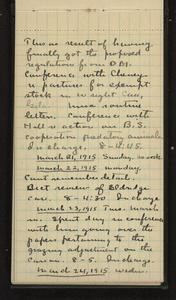 This as result of having
finally got the proposed
regulation from D.M.
Conference with Cheney
re pastures for exempt
stock in
misc routine
letters. Conference with
Hill re action on B.S.
cooperation predatory animals
In charge. 8-4:45.
March 21, 1915 Sunday. no work.
March 22, 1915 Monday.
Cant remember details.
Brief review of Eldredge
case. 8-4:30 In charge
March 23, 1915 Tues.
Spent day in conference
with him going over the
papers pertaining to the
grazing adjustment on the
8-5. In charge.
March 24, 1915 Wedn.